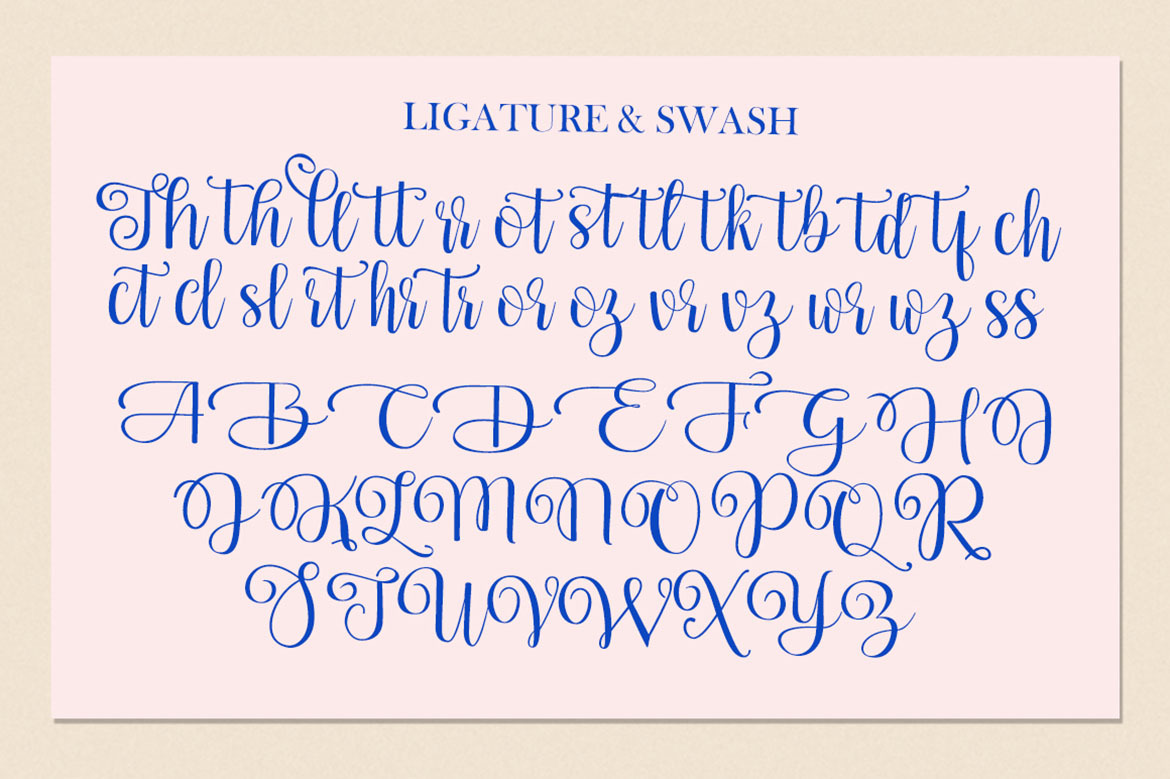 LIGATURE & SWASH
Th th ll tt rr ot st tl tk tb td tf ch
ct cl sl rt hr tr or oz vr vz wr wz ss
A B C D E F G H I
J K L M N O P Q R
S T U V W X Y Z